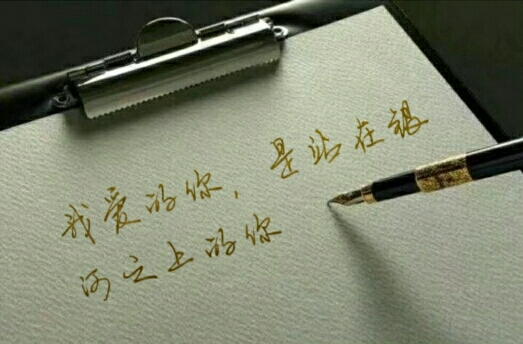 我爱的你，是站在银
河之上的你